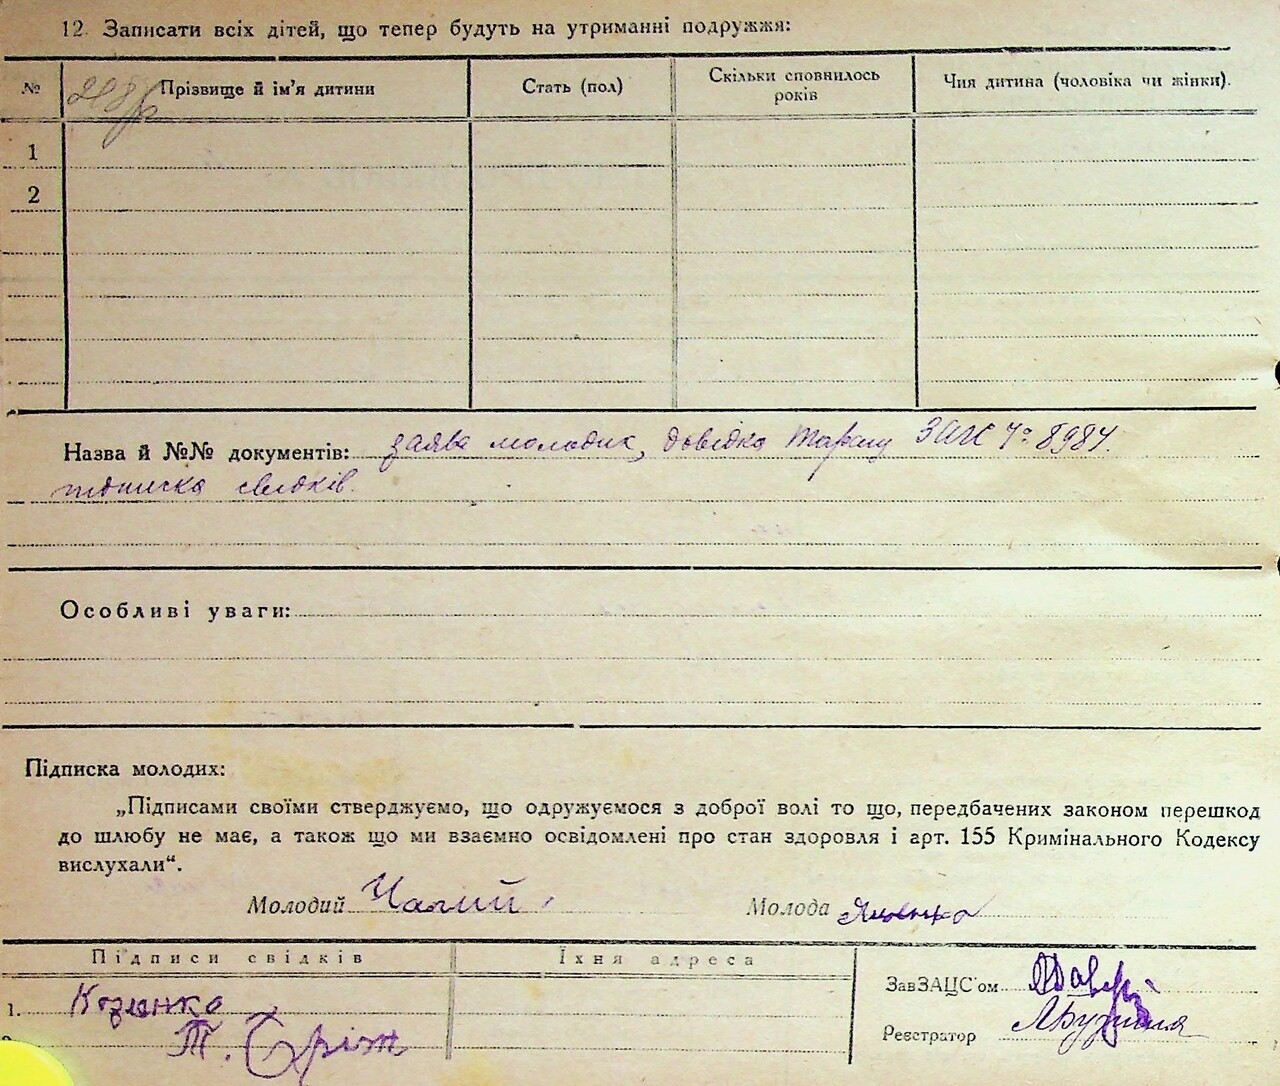 12. Записати всіх дітей, що тепер будуть на утриманні подружжя:
№ Прізвище й ім’я дитини Стать (пол) Скільки сповнилось років Чия дитина (чоловіка чи жінки).
1
2
Назва й №№ документів: заява молодих, довідка ЗАГС № 8984.
підписка свідків.
Особливі уваги:
Підписка молодих:
„Підписами своїми стверджуємо, що одружуємося з доброї волі то що, передбачених законом перешкод
до шлюбу не має, а також що ми взаємно освідомлені про стан здоровля і арт. 155 Кримінального Кодексу
вислухали“.
Молодий Чалий Молода
Підписи свідків Їхня адреса
ЗавЗАЦС’ом
1. Козенко
Реєстратор
Т.